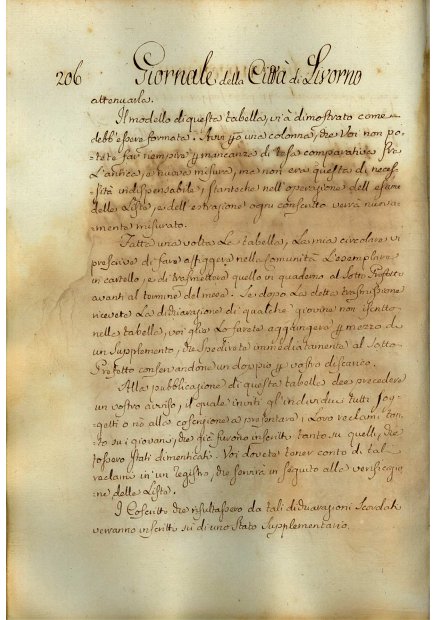 206 Giornale della Città di Livorno
attenuarla.
Il modello di questa tabella, vi à dimostrato come
debb'essere formata. Avvi però una colonna, che Voi non po-
tete far riempire per mancanza di Tesa comparativa fra
L'antica, e nuova misura, ma non era questa di neces-
sità indispensabile, stanteche nell'operazione dell'esame
delle Liste, e dell'estrazione ogni conscritto verrà nuova-
mente misurato.
Fatta una volta La tabella, La mia circolare vi
prescrive di fare affiggere nella comunità L'esemplare
in cartello, e di trasmettere quello in quaderno al Sotto Prefetto
avanti al termine del mese. Se dopo La detta trasmissione
riceveste La dichiarazione di qualche giovine non iscritto
nella tabella, voi glie Lo farete aggiungere per mezzo di
un Supplemento, che Spedirete immediatamente al Sotto
Prefetto conservandone un doppio per vostro discarico.
Alla pubblicazione di questa tabella dee precedere
un vostro avviso, il quale inviti gl'individui tutti sog-
getti o nò alla coscrizione a presentare i Loro reclami tan-
to su i giovani, che già furono inscritti tanto su quelli, che
fossero stati dimenticati. Voi dovete tener conto di tal
reclami in un registro, che servirà in seguito alla verificazio
ne delle Liste.
I Coscritti che risultassero da tali dichiarazioni Scordati
verranno inscritti su di uno Stato Supplementario.